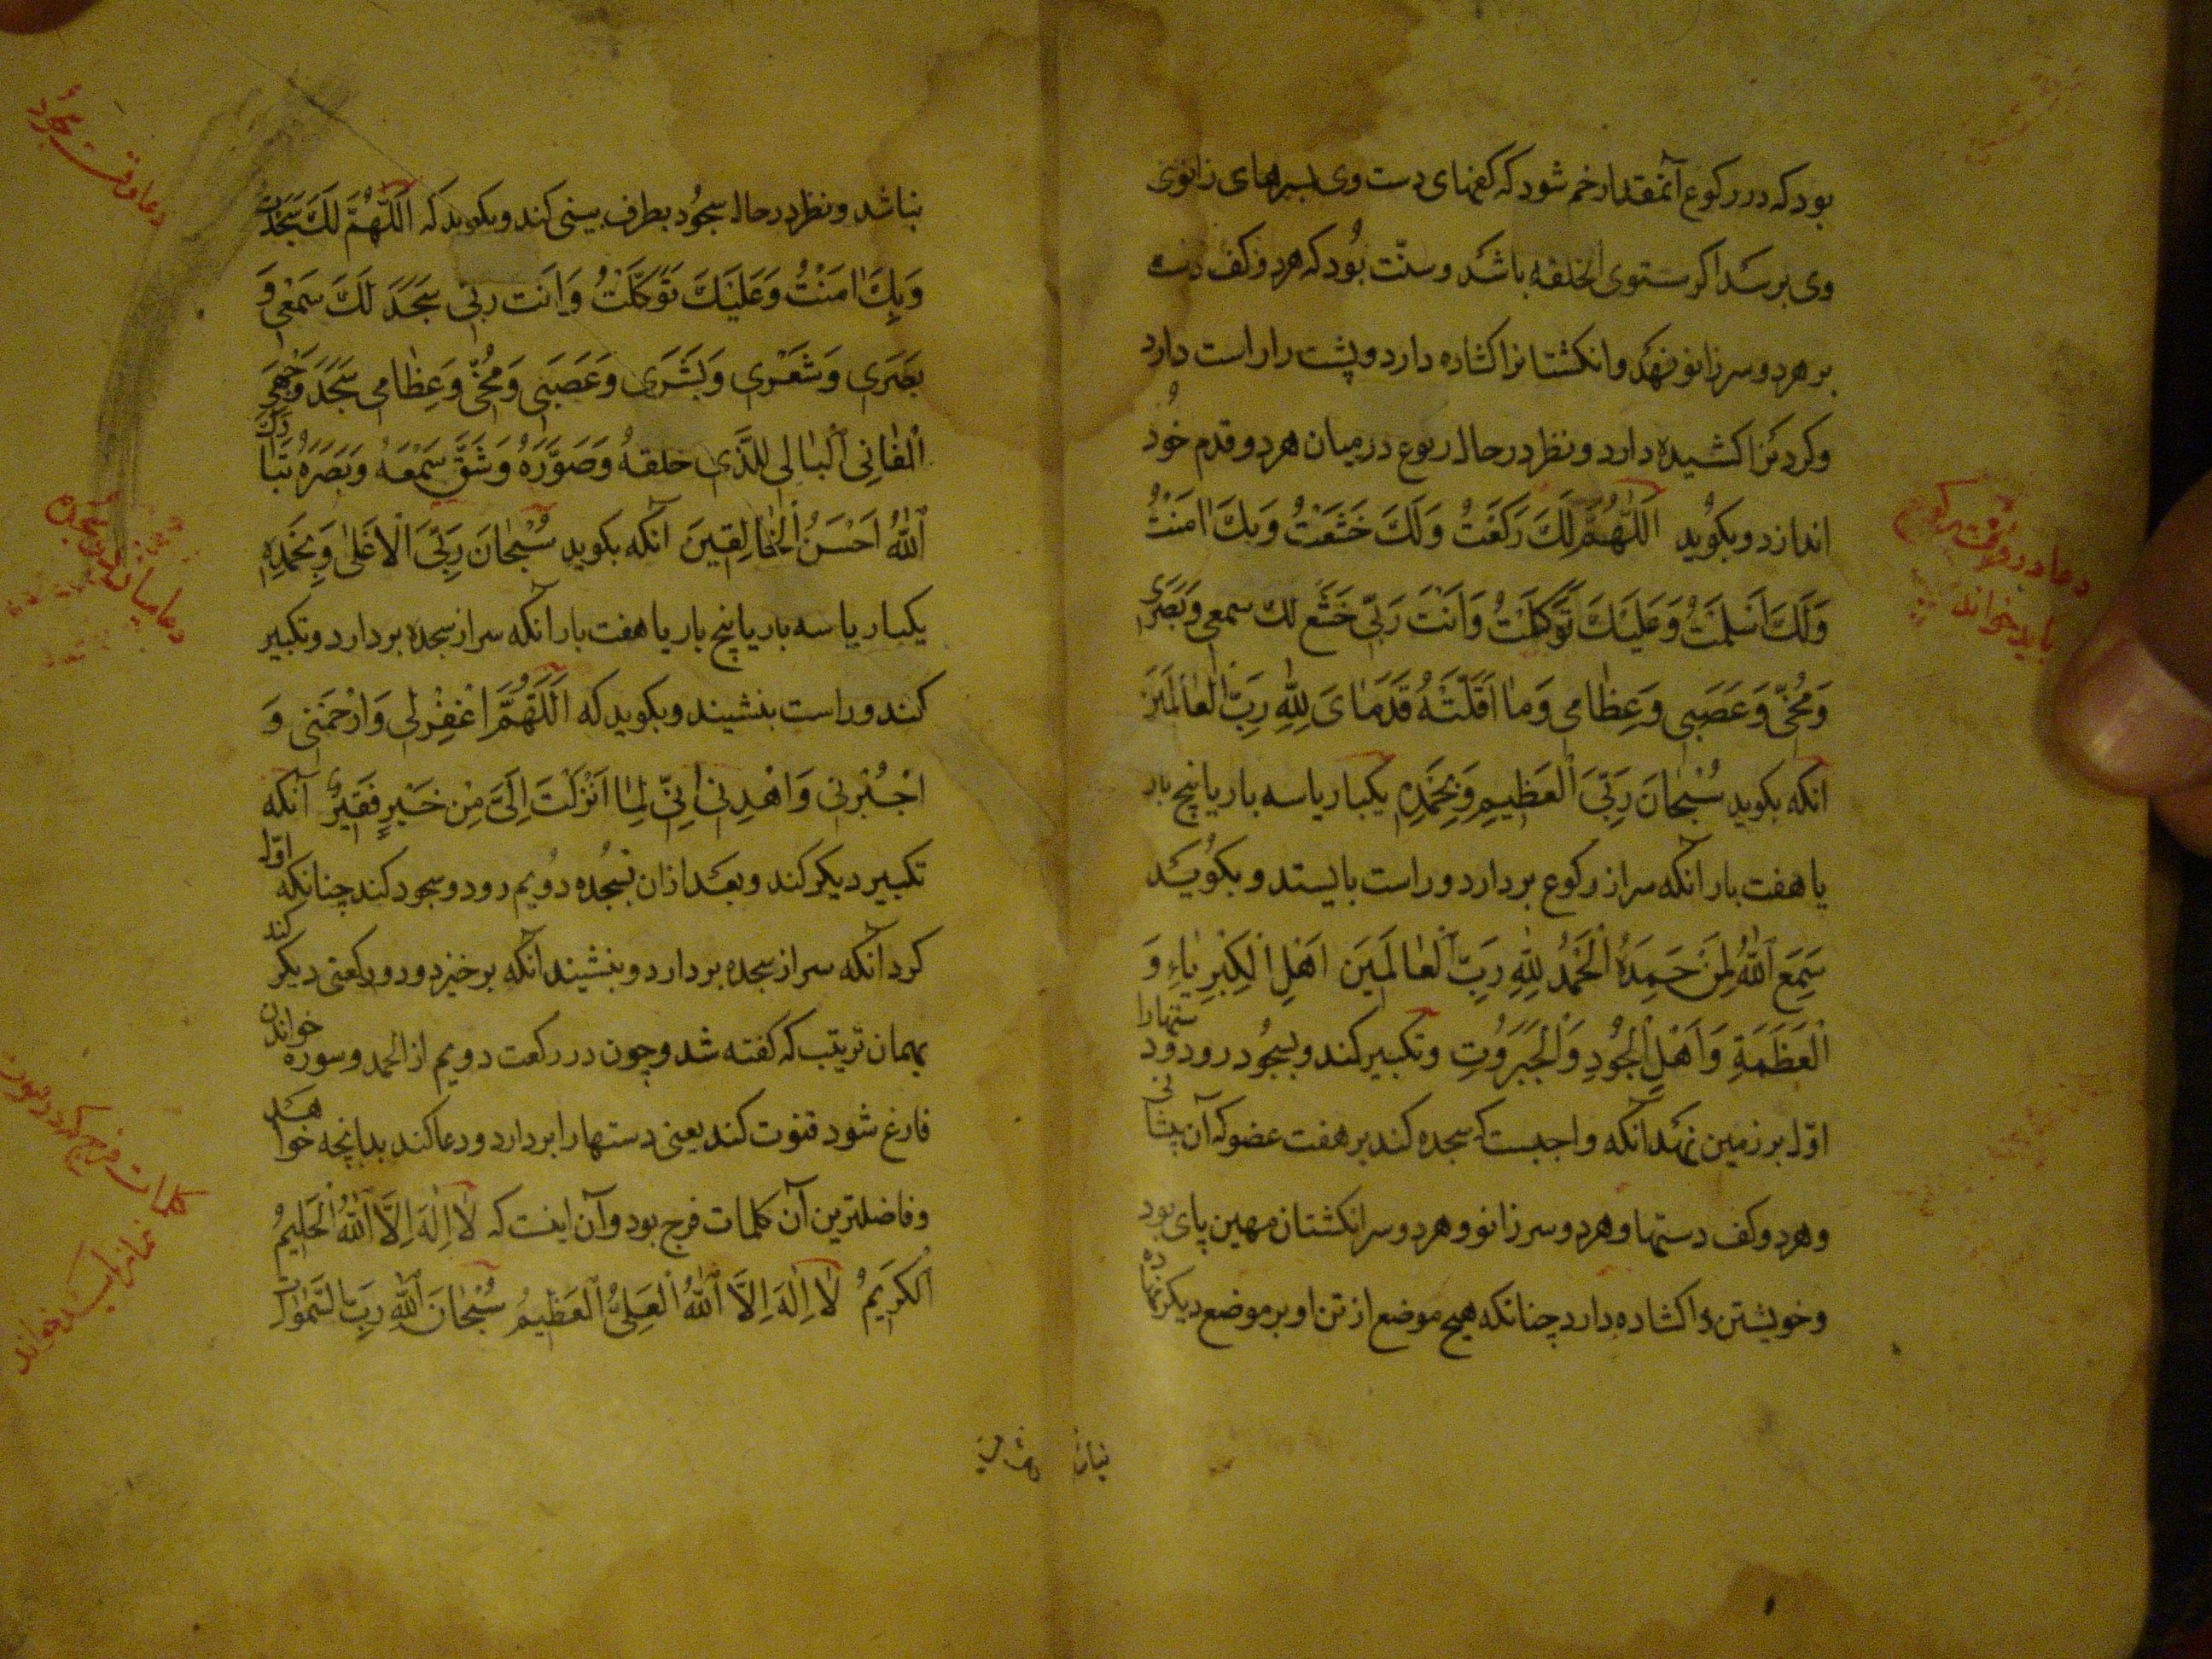 بود که در رکوع آنمقدار خم شود که کفهای دست وی بسرهای زانوی
وی برسد اکر مستوی الخلقه باشد و سنّت بُود که هر دو کف دست
بر هر دو سر زانو نهد و انکشتانرا کشاده دارد و پشت را راست دارد
و کردنرا کشیده دارد و نظر در حال رکوع در میان هر دو قدم خُود
اندازد و بکوُید اَللّٰهُمَّ لَكَ رَكَعْتُ وَلَكَ خَشَعْتُ وَبِكَ اٰمَنْتُ
وَلَكَ اَسْلَمْتُ وَعَلَيْكَ تَوَكَّلْتُ وَاَنْتَ رَبّي خَشَعَ لك سمعي وَبَصَري
وَمُخّي وَعَصَبي وَعِظٰامي وَمٰا اَقَلَّتْهُ قَدَمٰايَ لِلّٰهِ رَبِّ الْعٰالَمينَ
آنكه بكويد سُبْحٰانَ رَبّيَ الْعَظيمِ وَبِحَمْدِهِ یکبار یا سه بار یا پنج بار
یا هفت بار آنکه سر از رکوع بردارد و راست بایستد و بکوُید
سَمِعَ اللّٰهُ لِمَنْ حَمِدَهُ اَلْحَمْدُ لِلّٰهِ رَبِّ الْعٰالَمينَ اَهْلِ الْكِبْرِيٰاءِ وَ
الْعَظَمَةِ وَاَهْلِ الْجُودِ وَالْجَبَرُوتِ و تکبیر کند و بسجُود رود و دستهارا
اوّل بر زمین نهد آنکه واجبست که سجده کند بر هفت عضو که آن پیشانی
و هر دو کف دستها و هر دو سر زانو و هر دو سر انکشتان مهین پای بود
و خویشتن را کشاده دارد چنانکه هیچ موضع از تن او بر موضع دیکر نهاده
دعا در وقت رکوع
باید خواند
نباشد و نظر در حال سجُود بطرف بینی کند و بکوید که اَللّٰهُمَّ لَكَ سَجَدْتُ
وَبِكَ اٰمَنْتُ وَعَلَيْكَ تَوَكَّلْتُ وَاَنْت رَبّي سَجَدَ لَكَ سَمْعي وَ
بَصَري وَشَعْري وَبَشَري وَعَصَبي وَمُخّي وَعِظٰامي سَجَدَ وَجْهِيَ
الْفٰانِي الْبٰالي لِلَّذي خلقهُ وَصَوَّرَهُ وَشَقَّ سَمْعَهُ وَبَصَرَهُ تَبٰارَكَ
اَللّٰهُ اَحْسَنُ الْخٰالِقينَ آنکه بکوید سُبْحٰانَ رَبّيَ الْاَعْلٰى وَبِحَمْدِهِ
یکبار یا سه بار یا پنج بار یا هفت بار آنکه سر از سجده بردارد و تکبیر
کند و راست بنشیند و بکوید که اَللّٰهُمَّ اغْفِرْلي وَارْحَمْني وَ
اجْبُرْني وَاهْدِني اِنّي لِمٰا اَنْزَلْتَ اِلَيَّ مِنْ خَيْرٍ فَقيرٌ آنکه
تکبیر دیکر کند و بعد ازان بسجُده دوُیم رود و سجود کند چنانکه اوّل
کرد آنکه سر از سجده بردارد و بنشیند آنکه برخیزد و رکعتی دیکر کند
بهمان ترتیب که کفته شد و چون در رکعت دویم از الحمد و سوره خواندن
فارغ شود قنوت کند یعنی دستهارا بردارد و دعا کند بدانچه خواهد
و فاضلترین آن کلمات فرج بود و آن اینست که لٰا اِلٰهَ اِلَّا اللّٰهُ الْحَليمُ
الْكَريمُ لٰا اِلٰهَ اِلَّا اللّٰهُ الْعَلِيُّ الْعَظيمُ سُبْحٰانَ اللّٰهِ رَبِّ السَّمٰوٰاتِ
دعا وقت سجُود
کلمات فرج که در قنوت
نماز باید خواند